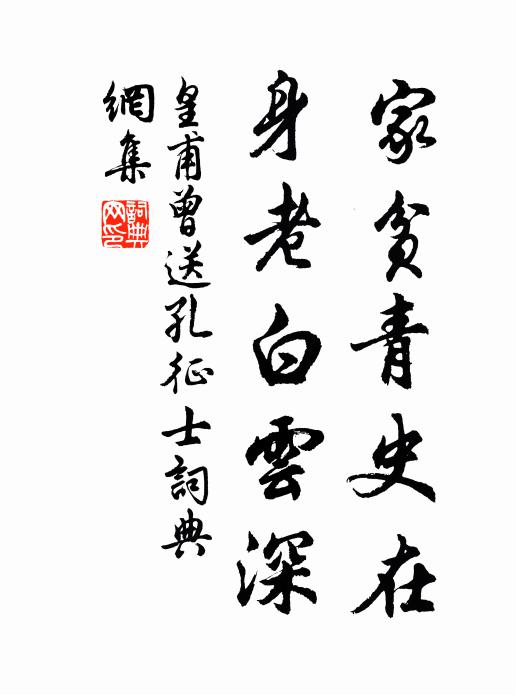 家貧青史在
身老白雲深
皇甫曾送孔征士詞典
網集
詞典網印